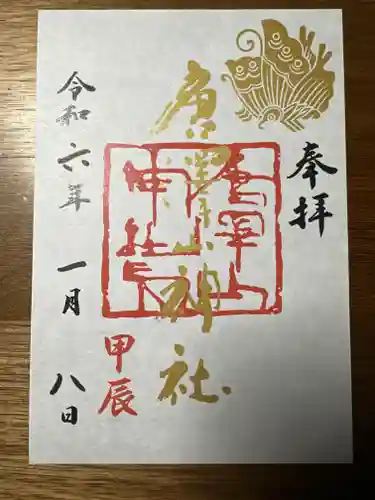 奉拝
唐澤山神社
甲辰
令和六年一月八日